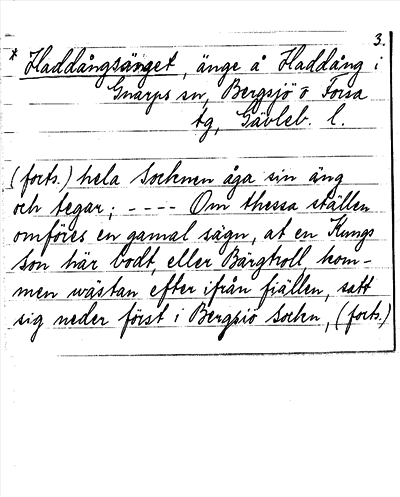 3.
* Haddångsänget, änge å Haddång i
Gnarps sn, Bergsjö o Forsa
tg, Gävleb. l.
(forts.) hela Socknen äga sin äng
och tegar; ---- Om thessa ställen
omföres en gamal sägn, at en Kungs
Son här bodt, eller Bärgtroll kom-
men wästan efter ifrån fiällen, satt
sig neder först i Bergsiö Sockn, (forts.)